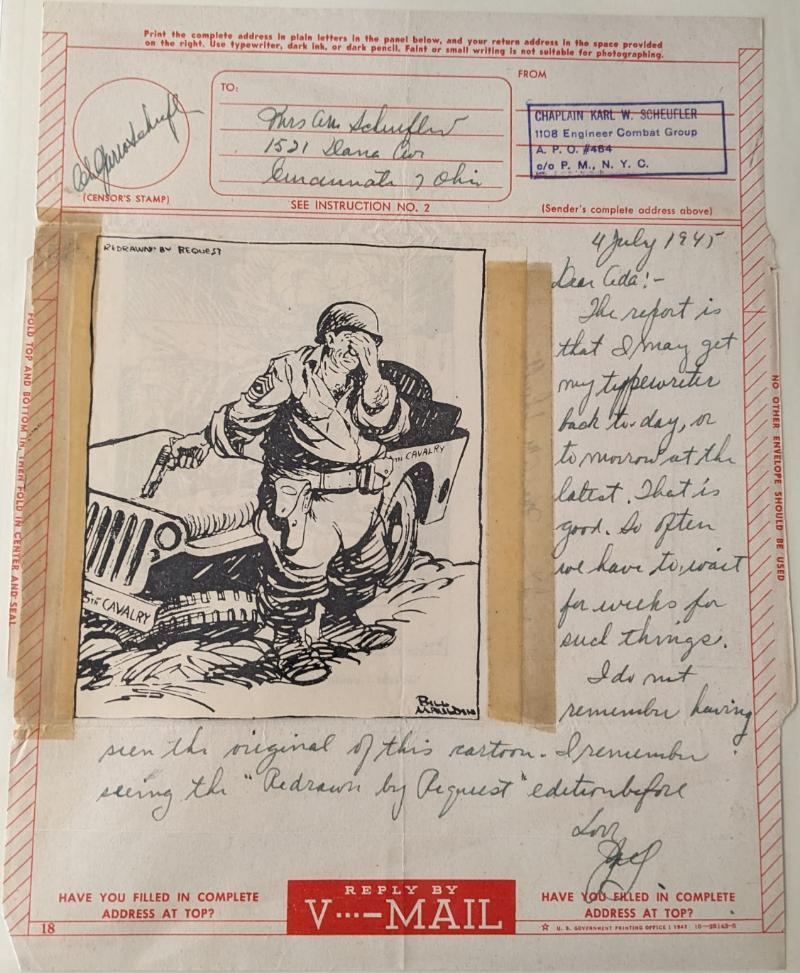 Print the complete address in plain letters in the panel below, and your return address in the space provided
on the right. Use typewriter, dark ink, or dark pencil. Faint or small writing is not suitable for photographing.
TO:
FROM
Mrs Scheufler
1521 Dana Ave
Cincinnati 7 Ohio
CHAPLAIN KARL W. SCHEUFLER
1108 Engineer Combat Group
A. P. O. #464
c/o P. M., N. Y. C.
(CENSOR'S STAMP)
SEE INSTRUCTION NO. 2
(Sender's complete address above)
4 July 1945
Dear Ada:-
The report is
that I may get
my typewriter
back to-day, or
tomorrow at the
latest. That is
good. So often
we have to wait
for weeks for
such things.
I do not
remember having
seen the original of this cartoon. I remember
seeing the "Redrawn by Request" edition before
Love
REDRAWN BY REQUEST
TH CAVALRY
5TH CAVALRY
BILL
MAULDIN
FOLD TOP AND BOTTOM IN, THEN FOLD IN CENTER AND SEAL
NO OTHER ENVELOPE SHOULD BE USED
HAVE YOU FILLED IN COMPLETE
ADDRESS AT TOP?
REPLY BY
V···—MAIL
HAVE YOU FILLED IN COMPLETE
ADDRESS AT TOP?
18
☆ U. S. GOVERNMENT PRINTING OFFICE : 1943 16—28143-5